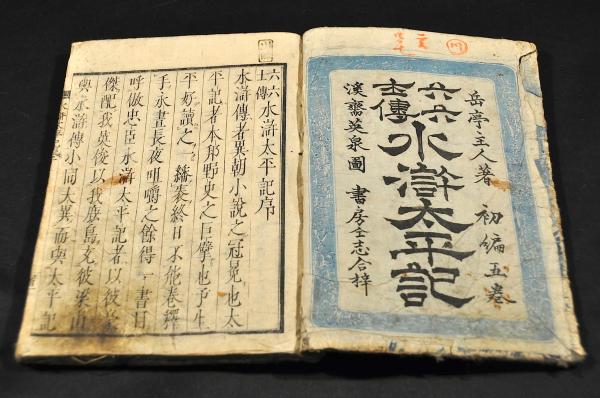 岳亭主人著 初編五卷
六六士傳
水滸太平記
溪齋英泉圖 書房仝志合梓
六六士傳 水滸太平記序
水滸傳者異朝小說之冠冕也太
平記者本邦野史之巨擘也予生
平好讀之一繙終日不能卷釋
手永晝長夜咀嚼之餘得一書目
呼倣忠臣水滸太平記者以彼豪
傑配我英俊以我鹿島充彼梁山
與水滸傳小同大異而與太平記